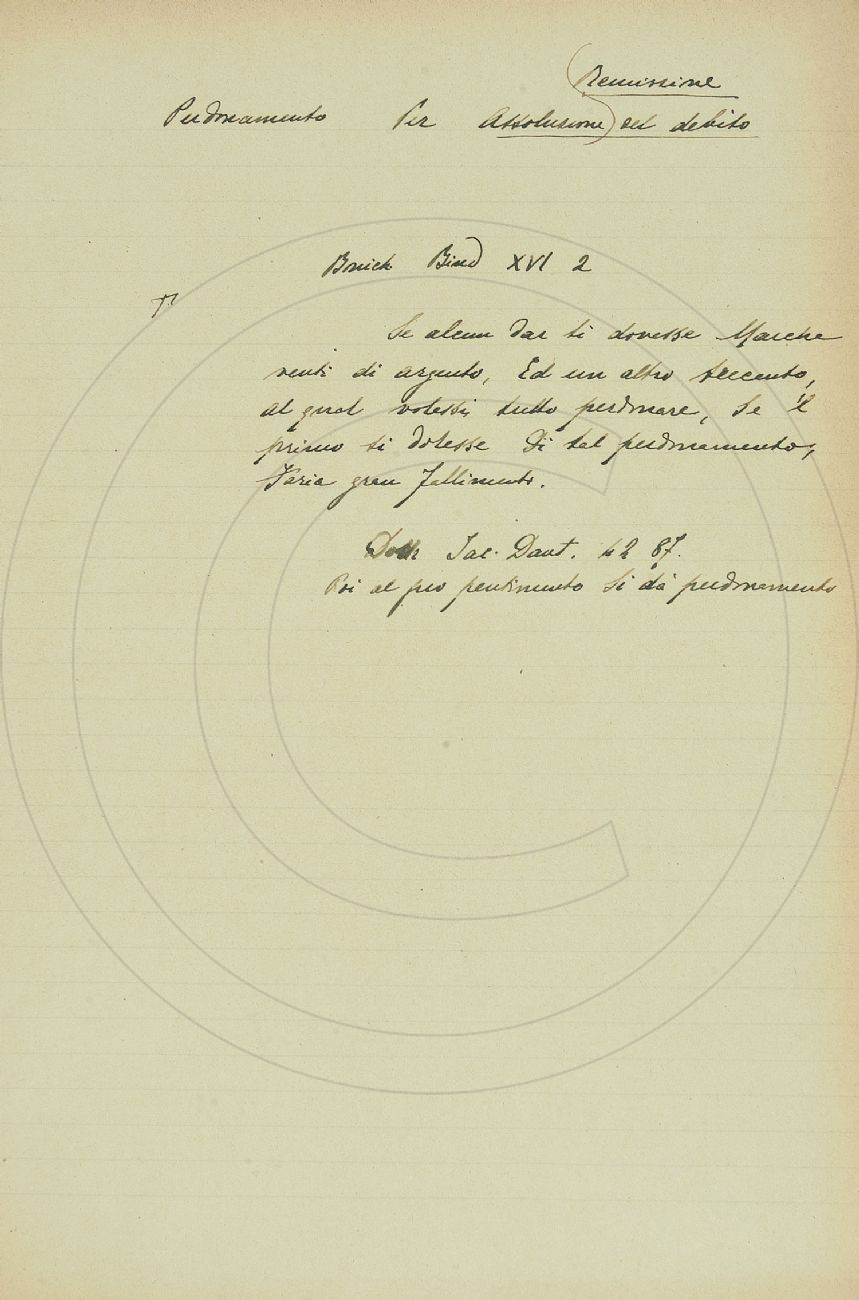 (Remissione
Perdonamento Per Assoluzione) del debito
Bonich Bind) XVI 2
Se alcun dar ti dovesse Marche
venti di argento, Ed un altro treccento,
al qual volessi tutto perdonare, Se 'l
primo ti dolesse Di tal perdonamento,
Faria gran fallimento.
Dott Jac. Dant. 42 87.
Poi al pio pentimento Si dà perdonamento